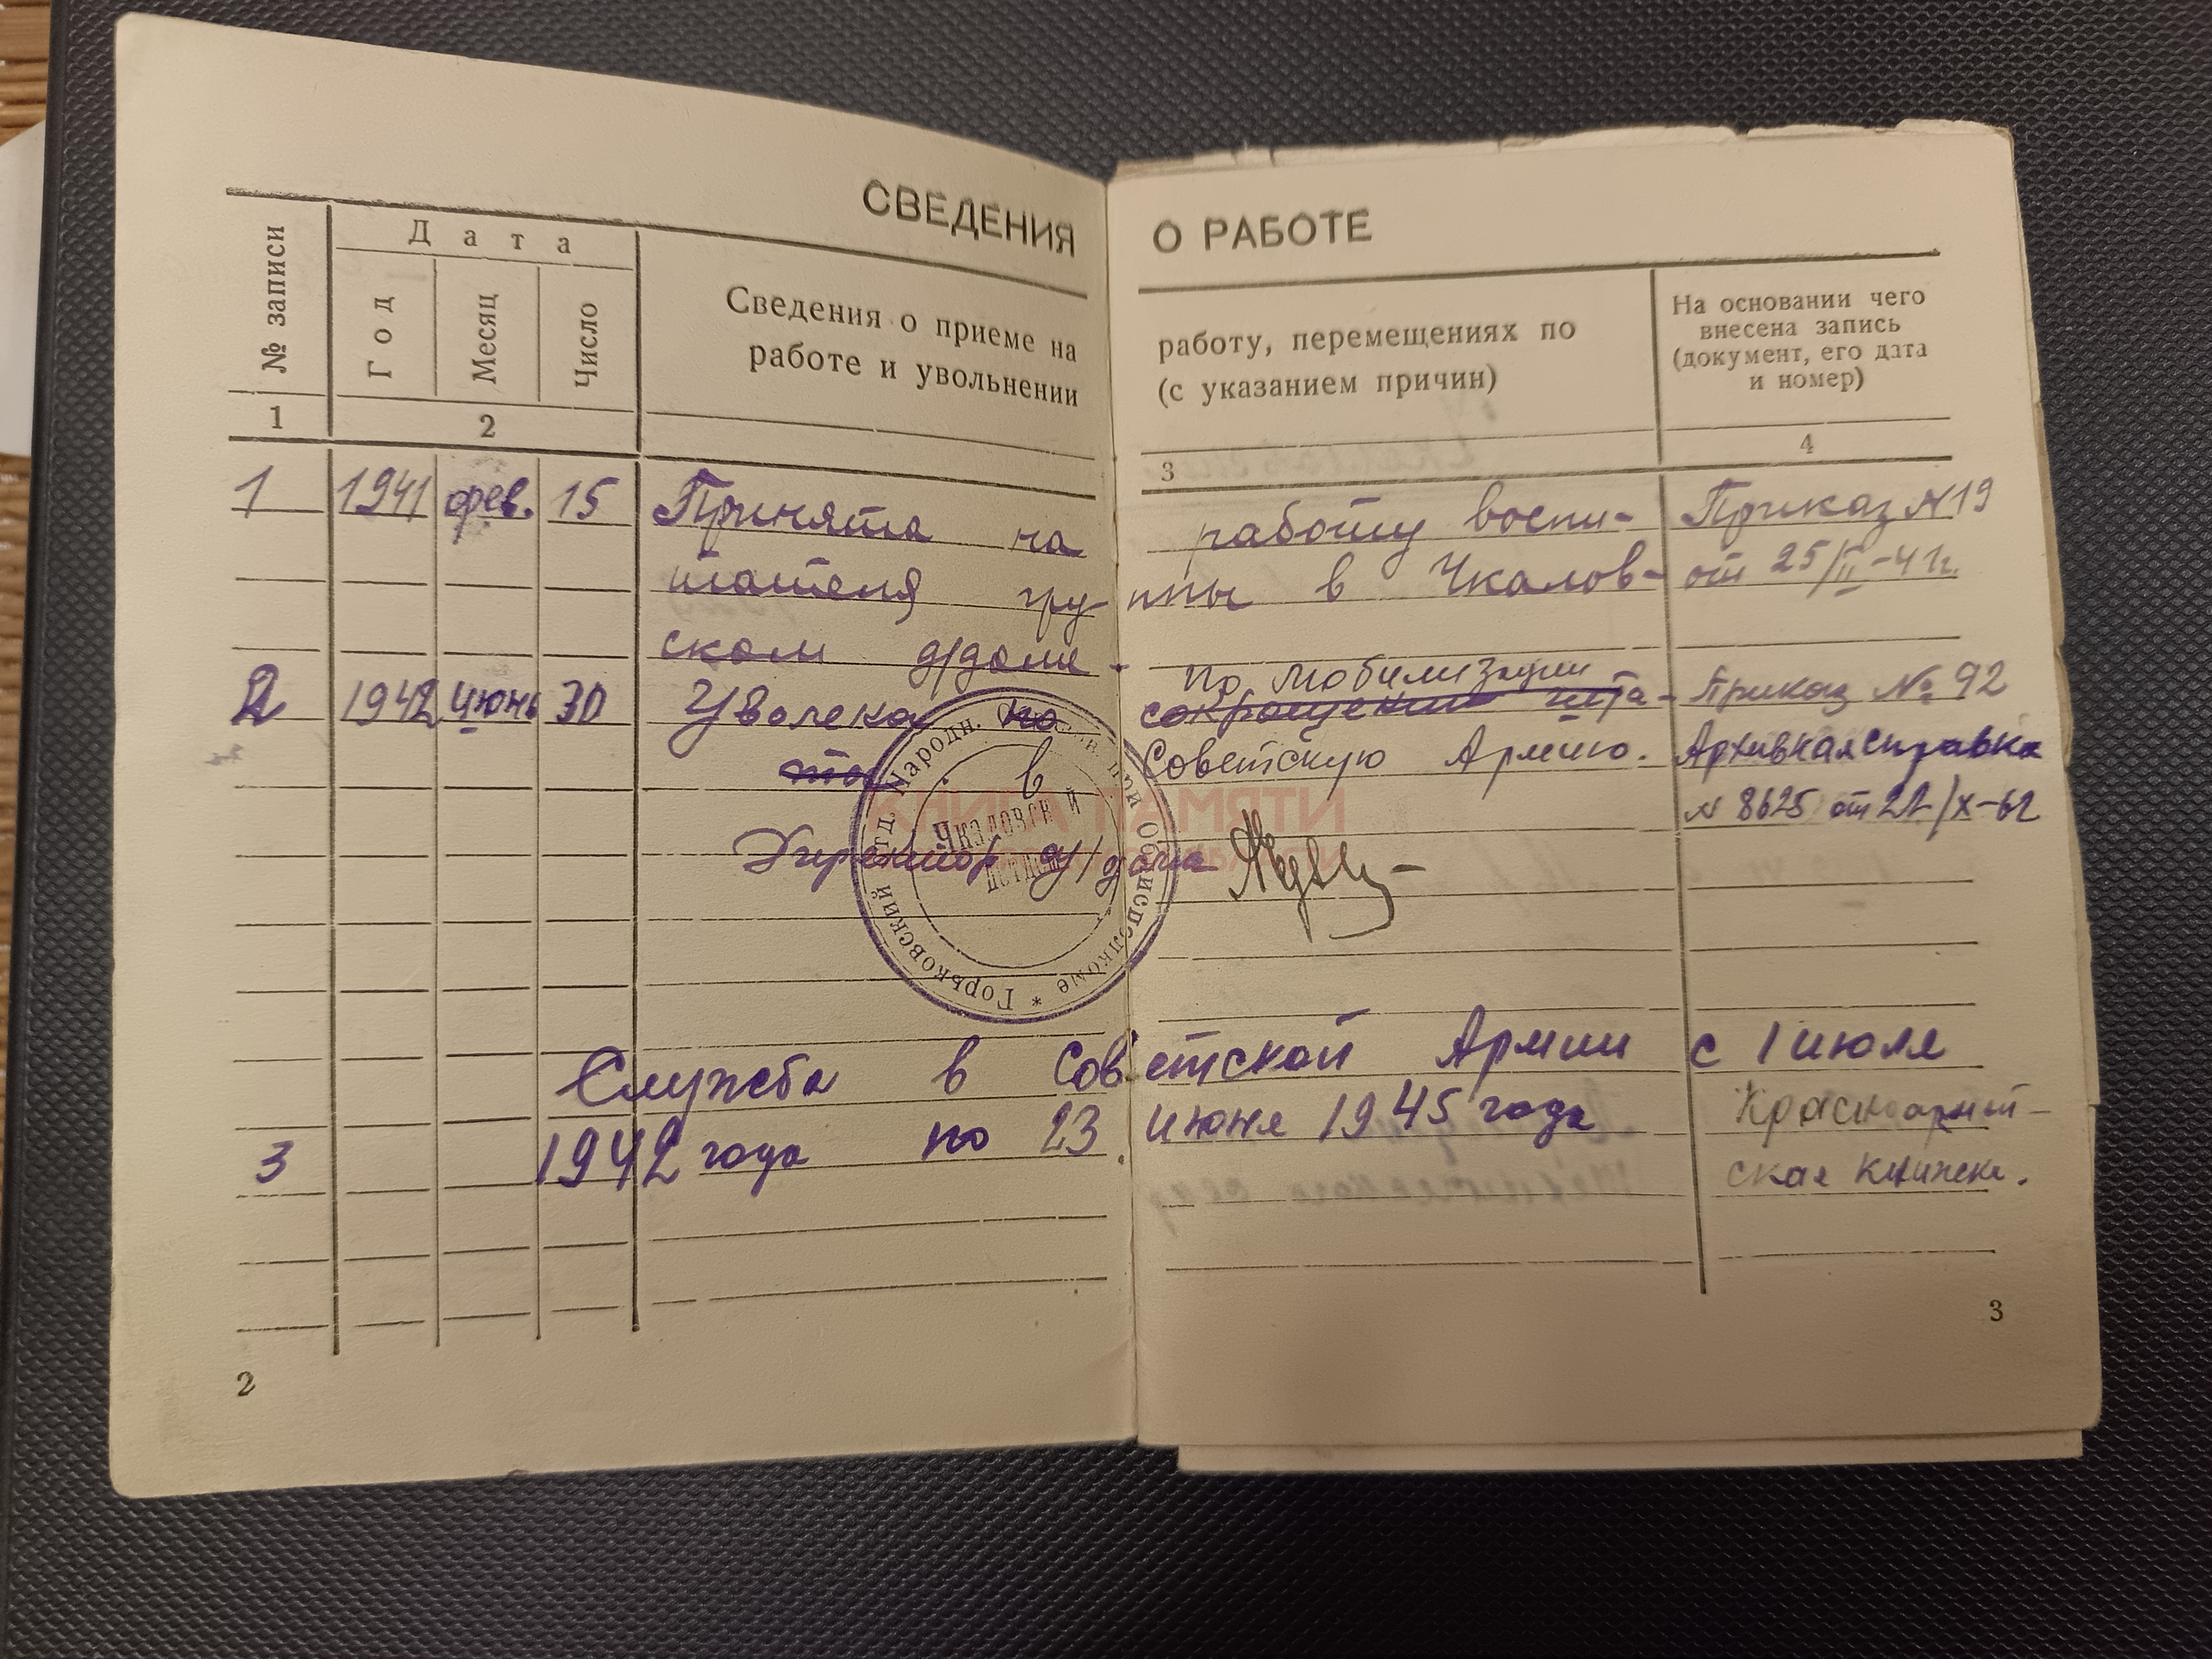 СВЕДЕНИЯ О РАБОТЕ
№ записи
Дата
Год
Месяц
Число
Сведения о приеме на работу, перемещениях по
работе и увольнении (с указанием причин)
На основании чего
внесена запись
(документ, его дата
и номер)
1 2 3 4
1 1941 фев. 15 Принята на работу воспи- Приказ №19
тателя груп-ппы в Чкалов- от 25/II-41г.
ском д/доме.
по мобилизации
2 1942 июнь 30 Уволена по сокращению шта- Приказ № 92
тов в Советскую Армию. Архивная справка
№ 8625 от 22/X-62
Директор д/дома
Горьковский отд. Народн. Образов. при Облисполкоме *
Чкаловский
детдом
КНИГА ПАМЯТИ
Служба в Советской Армии с 1 июля
3 1942 года по 23 июня 1945 года Красноармей-
ская книжка.
2
3